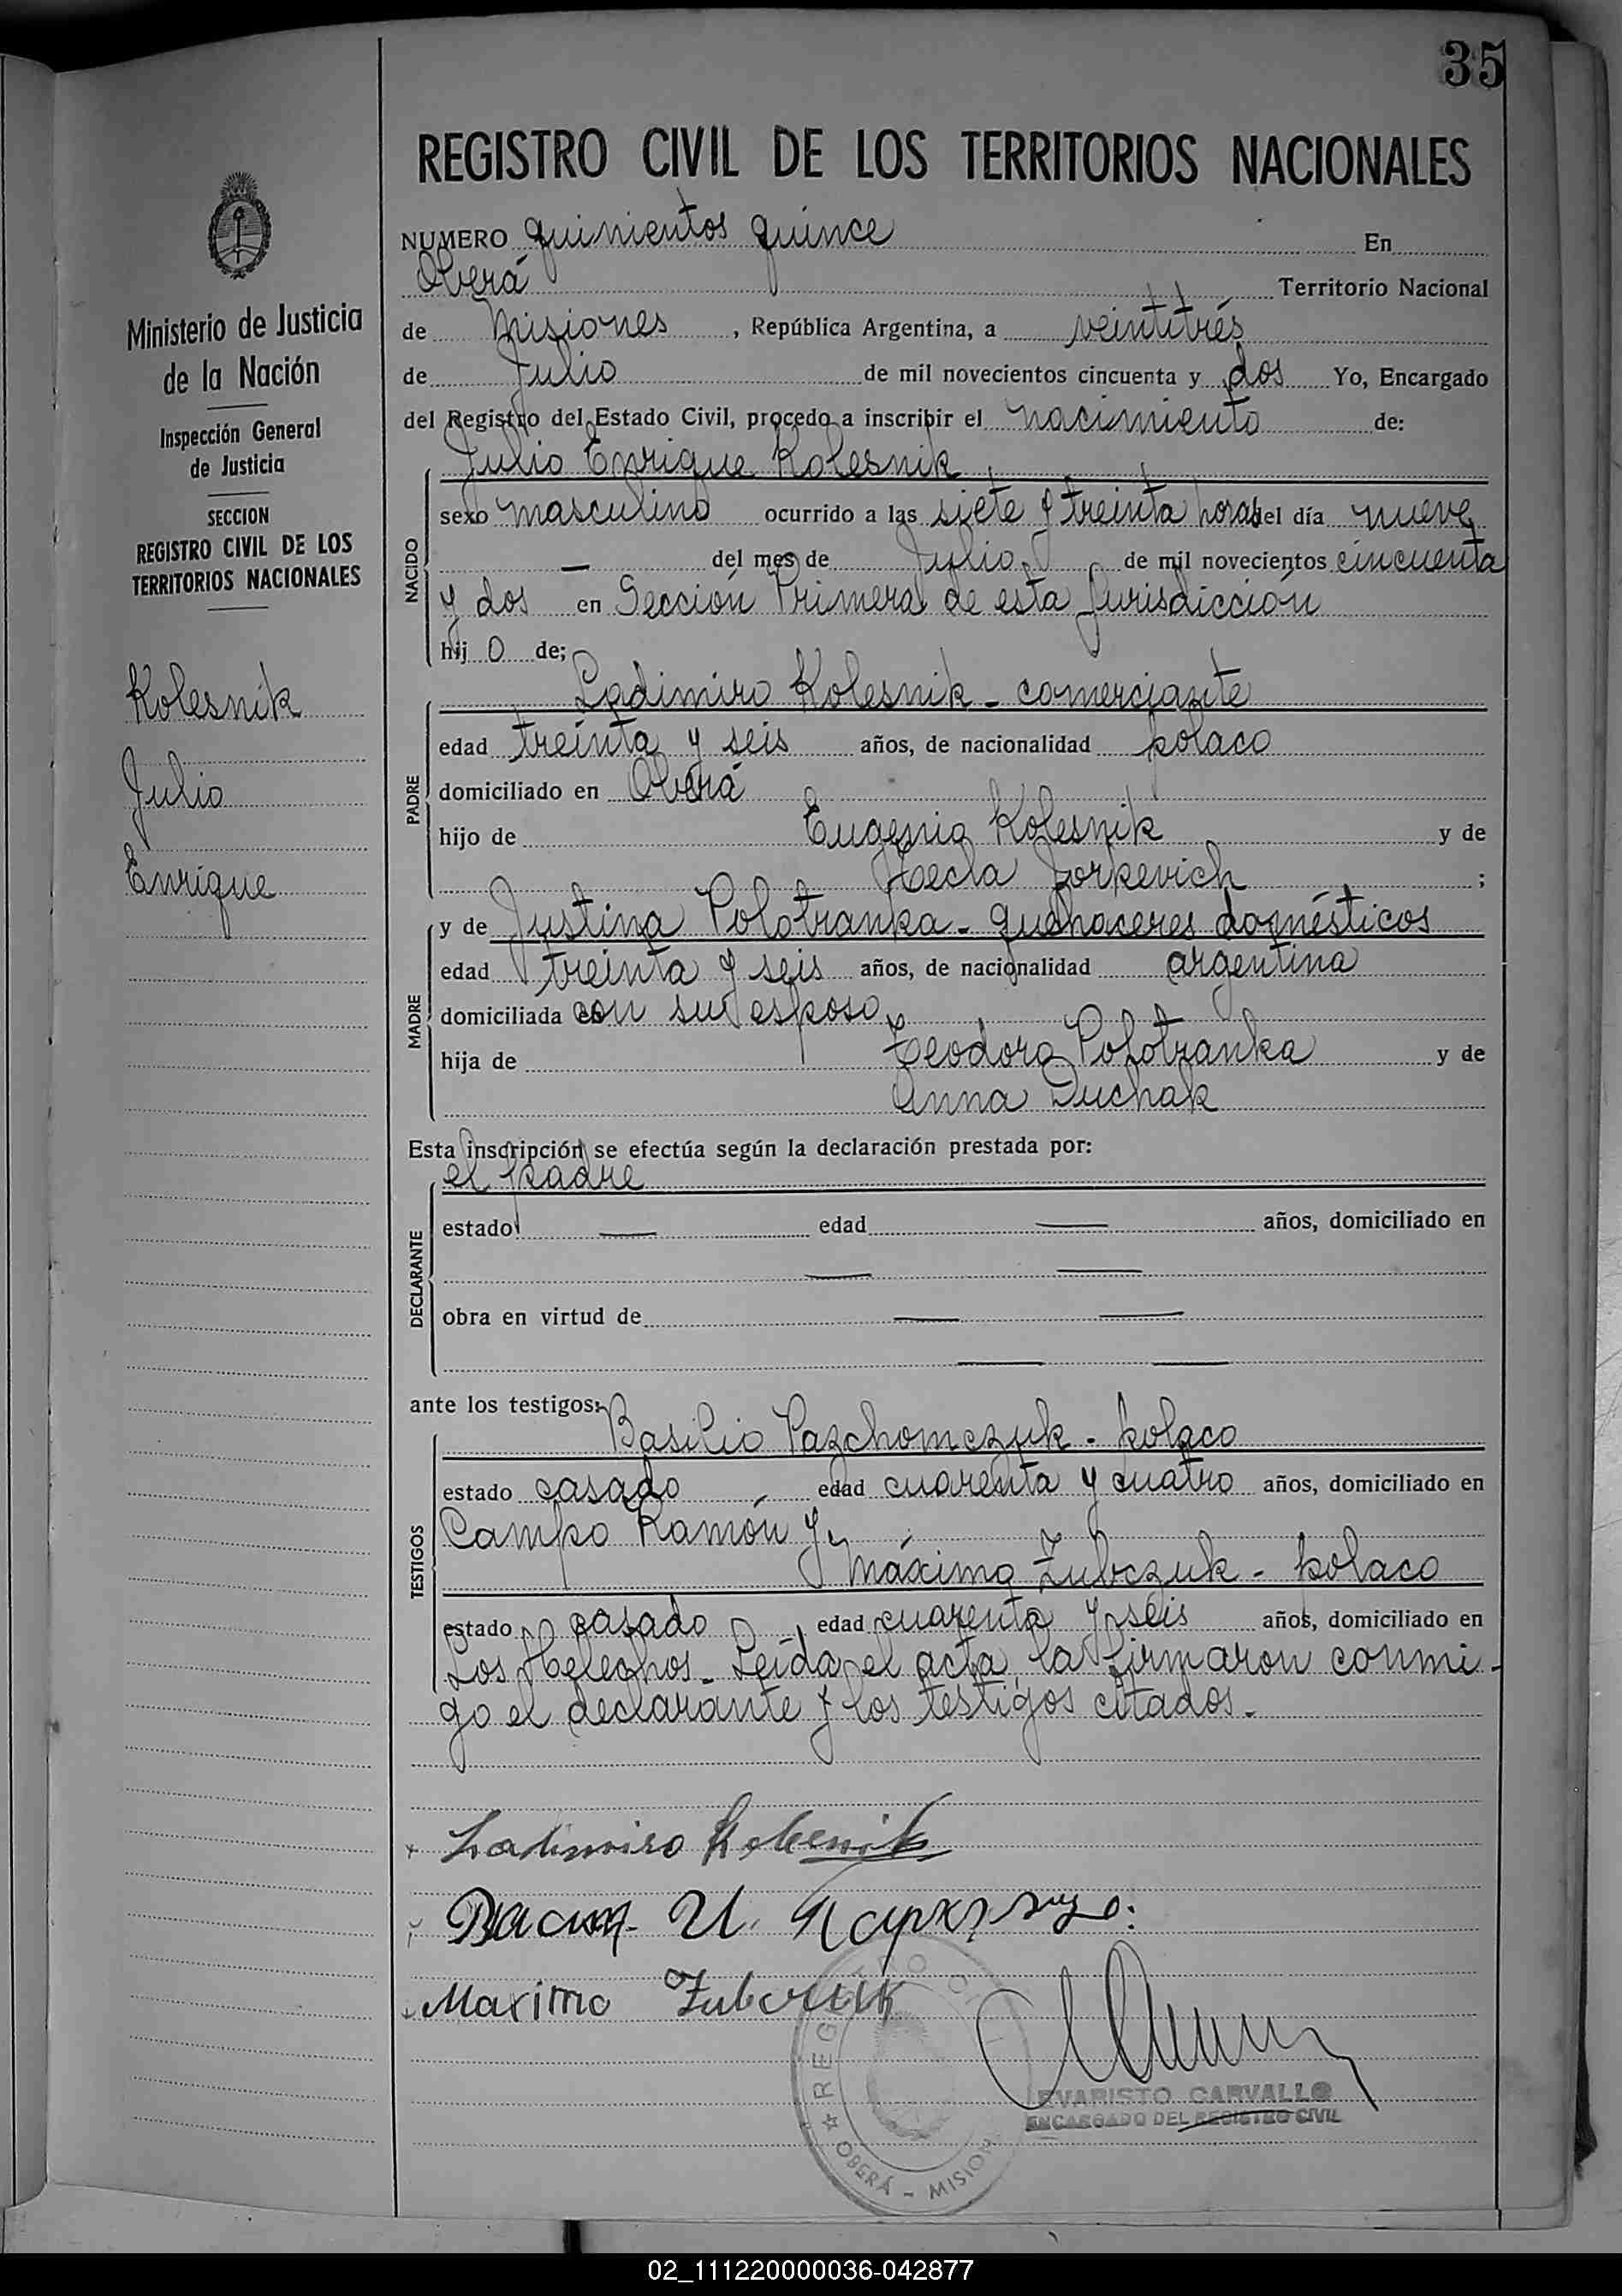 35
REGISTRO CIVIL DE LOS TERRITORIOS NACIONALES
Ministerio de Justicia
de la Nación
Inspección General
de Justicia
SECCION
REGISTRO CIVIL DE LOS
TERRITORIOS NACIONALES
Kolesnik
Julio
Enrique
NUMERO quinientos quince En
Oberá Territorio Nacional
de Misiones, República Argentina, a veintitrés
de Julio de mil novecientos cincuenta y dos Yo, Encargado
del Registro del Estado Civil, procedo a inscribir el nacimiento de:
Julio Enrique Kolesnik
NACIDO
sexo masculino ocurrido a las siete y treinta horas del día nueve
— del mes de Julio de mil novecientos cincuenta
y dos en Sección Primera de esta Jurisdicción
hijo de;
PADRE
Ladimiro Kolesnik - comerciante
edad treinta y seis años, de nacionalidad polaco
domiciliado en Oberá
hijo de Eugenio Kolesnik y de
Tecla Jorkevich;
MADRE
y de Justina Polotranka - quehaceres domésticos
edad treinta y seis años, de nacionalidad argentina
domiciliada con su esposo
hija de Teodoro Polotranka y de
Anna Duchak
Esta inscripción se efectúa según la declaración prestada por:
el padre
DECLARANTE
estado — edad — años, domiciliado en
— —
obra en virtud de — —
— —
ante los testigos:
TESTIGOS
Basilio Pazchomczuk - polaco
estado casado edad cuarenta y cuatro años, domiciliado en
Campo Ramón y
Máximo Zubczuk - polaco
estado casado edad cuarenta y seis años, domiciliado en
Los Helechos - Leída el acta, la firmaron conmi-
go el declarante y los testigos citados.-
Ladimiro Kolesnik
Maximo Zubczuk
REGISTRO CIVIL
OBERÁ - MISIONES
EVARISTO CARVALLO
ENCARGADO DEL REGISTRO CIVIL
02_111220000036-042877